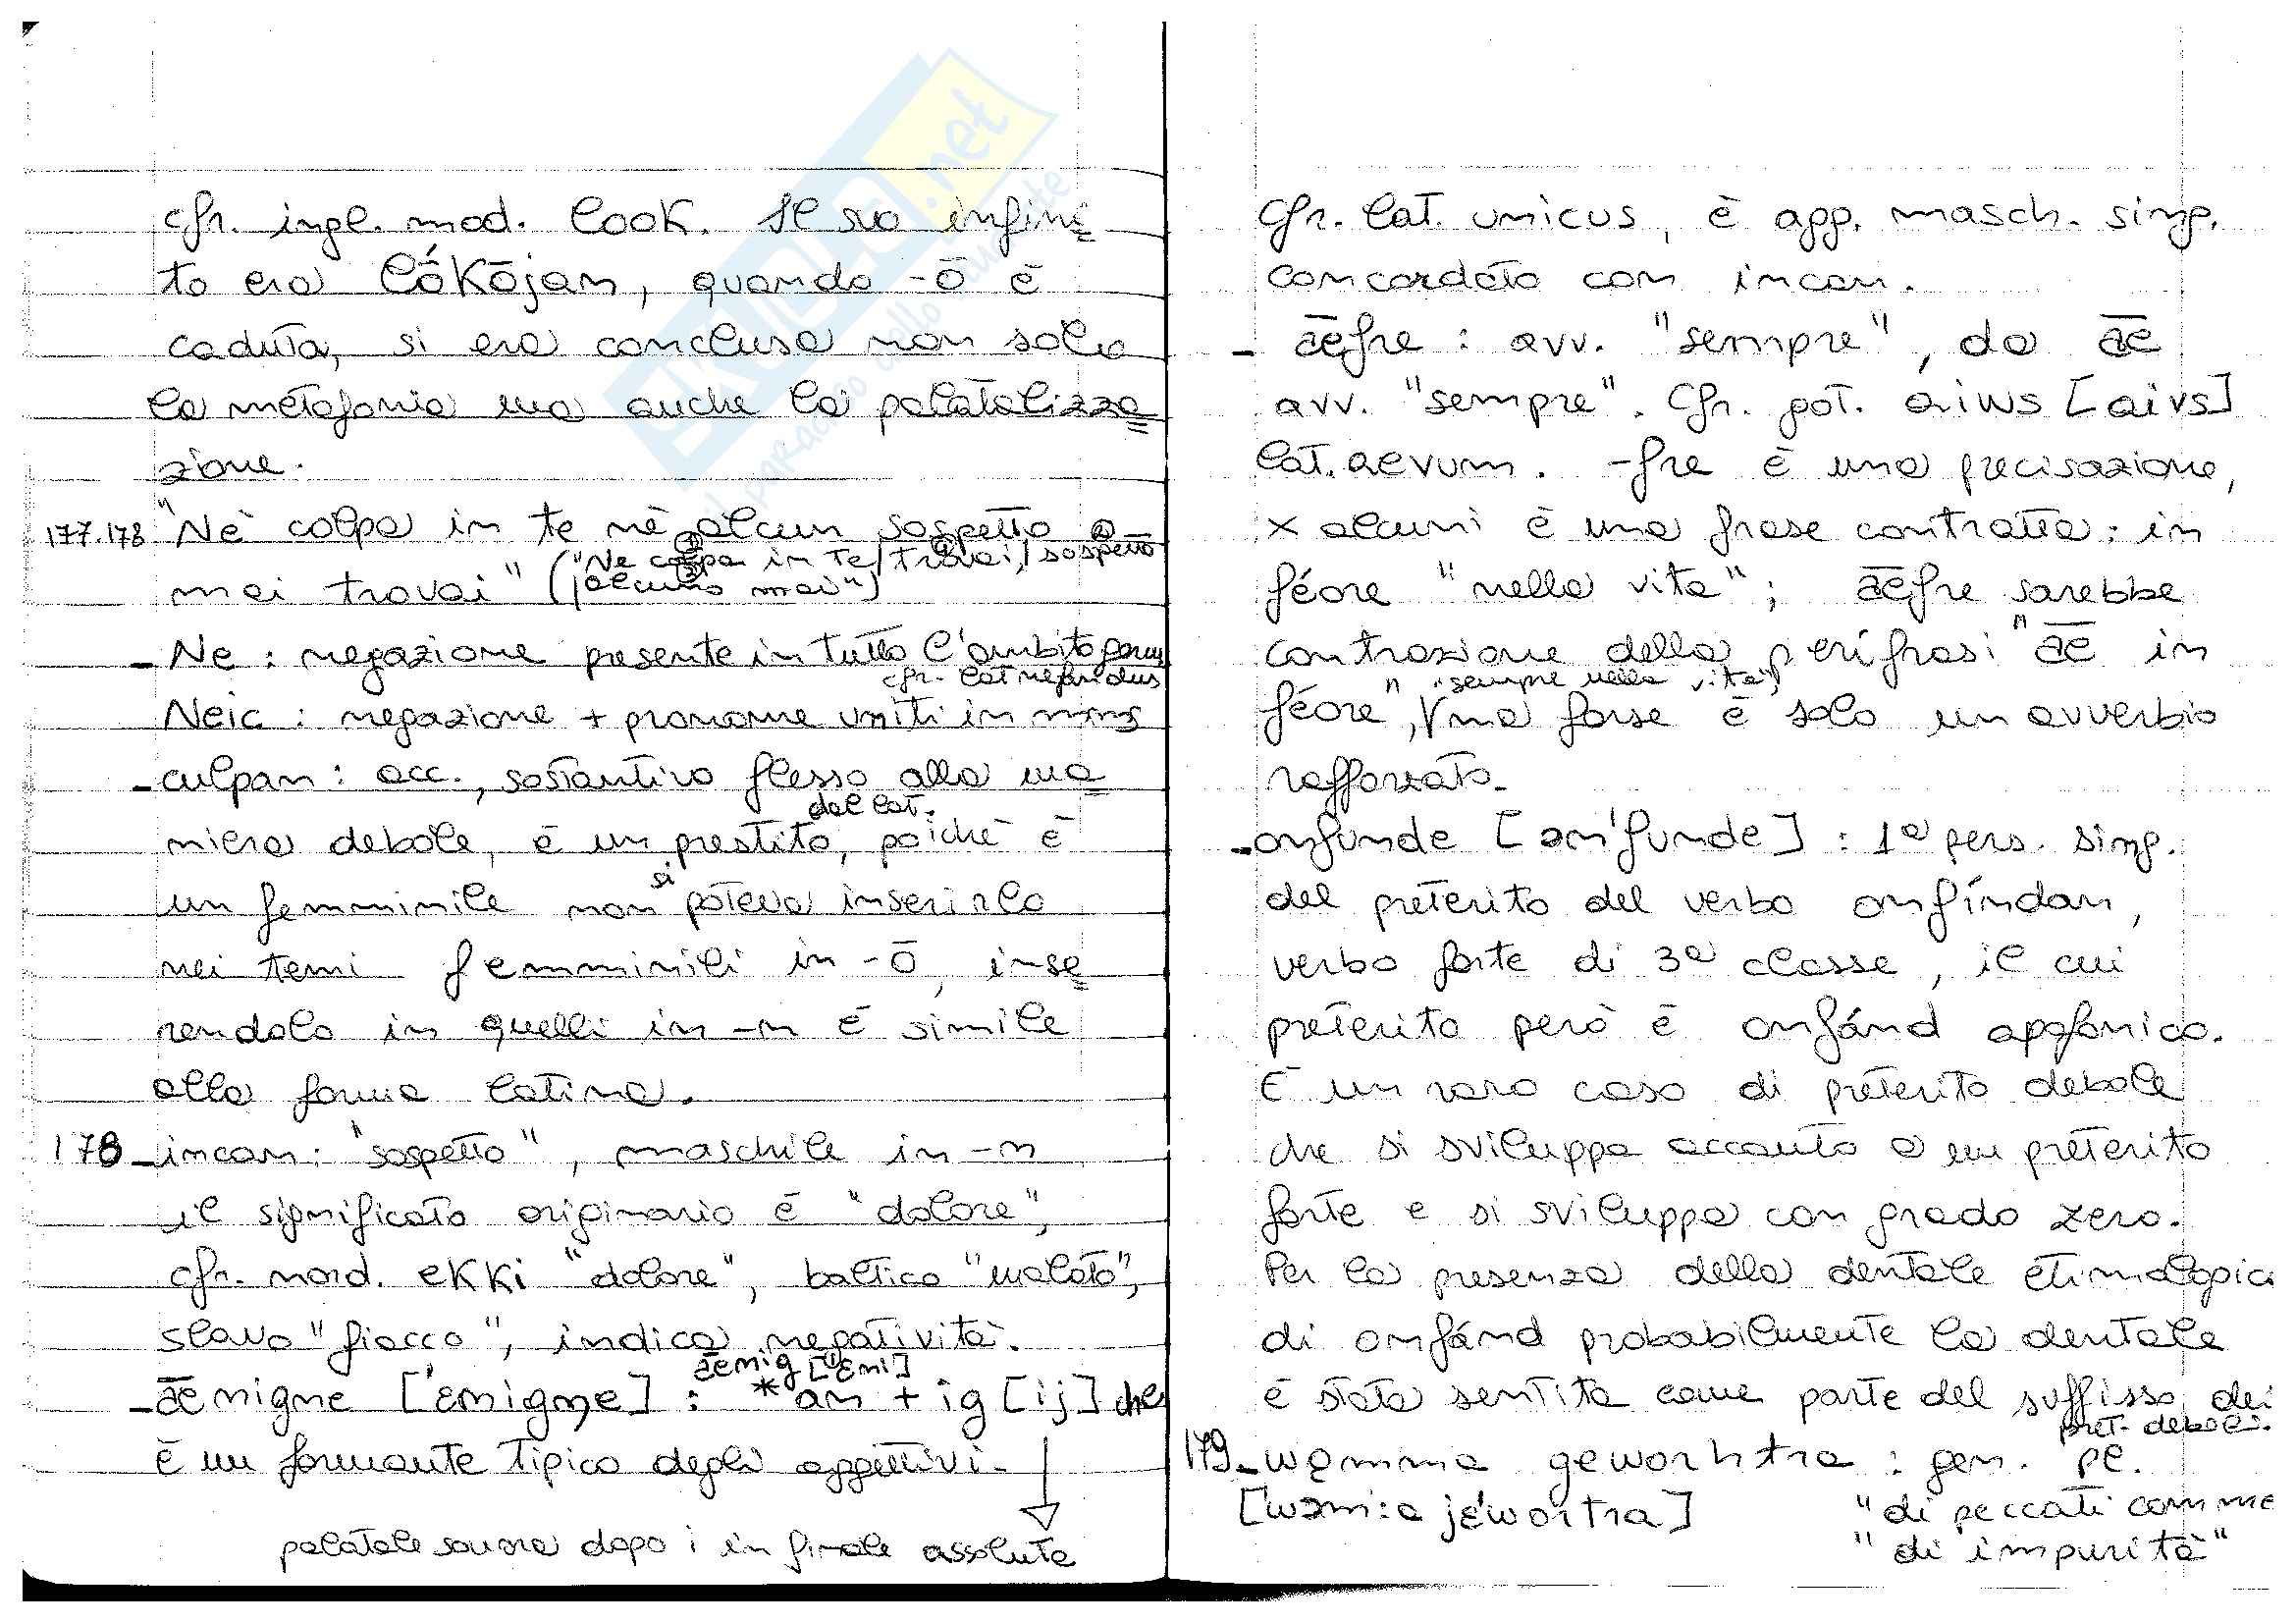 cfr. ingl. mod. look. Il suo infini
to era lṓkōjan, quando -ō è
caduta, si era conclusa non solo
la metafonia ma anche la palatalizza
zione.
177.178 "Nè colpa in te nè alcun sospetto
mai trovai" ("Ne colpa in te/trovai,/sospetto
alcuno mai")
- Ne: negazione presente in tutto l'ambito germ
cfr. lat nefandus
Neic: negazione + pronome uniti in mns
- culpan: acc., sostantivo flesso alla ma
niera debole, è un prestito dal lat., poichè è
un femminile non si poteva inserirlo
nei temi femminili in -ō, inse
rendolo in quelli in -n è simile
alla forma latina.
178 - incan: "sospetto", maschile in -n
il significato originario è "dolore",
cfr. nord. ekki "dolore", baltico "malato",
slavo "fiacco", indica negatività.
ǣnig ['ɛni]
- ǣnigne ['ɛnigne]: *an + ig [ij] che
è un formante tipico degli aggettivi-
palatale sonora dopo i in finale assoluta
cfr. lat. unicus, è agg. masch. sing.
concordato con incan.
- ǣfre: avv. "sempre", da ǣ
avv. "sempre". Cfr. got. aiws [aivs]
lat. aevum. -fre è una precisazione,
x alcuni è una frase contratta: in
féore "nella vita"; ǣfre sarebbe
contrazione della perifrasi "ǣ in
féore", "sempre nella vita", ma forse è solo un avverbio
rafforzato.
- onfunde [ɔn'funde]: 1ª pers. sing.
del preterito del verbo onfíndan,
verbo forte di 3ª classe, il cui
preterito però è onfánd apofonico.
È un raro caso di preterito debole
che si sviluppa accanto a un preterito
forte e si sviluppa con grado zero.
Per la presenza della dentale etimologica
di onfánd probabilmente la dentale
è stata sentita come parte del suffisso dei
pret. deboli.
179 - womma geworhtra: gen. pl.
[wɔm:a jɛ'wortra] "di peccati comme
"di impurità"